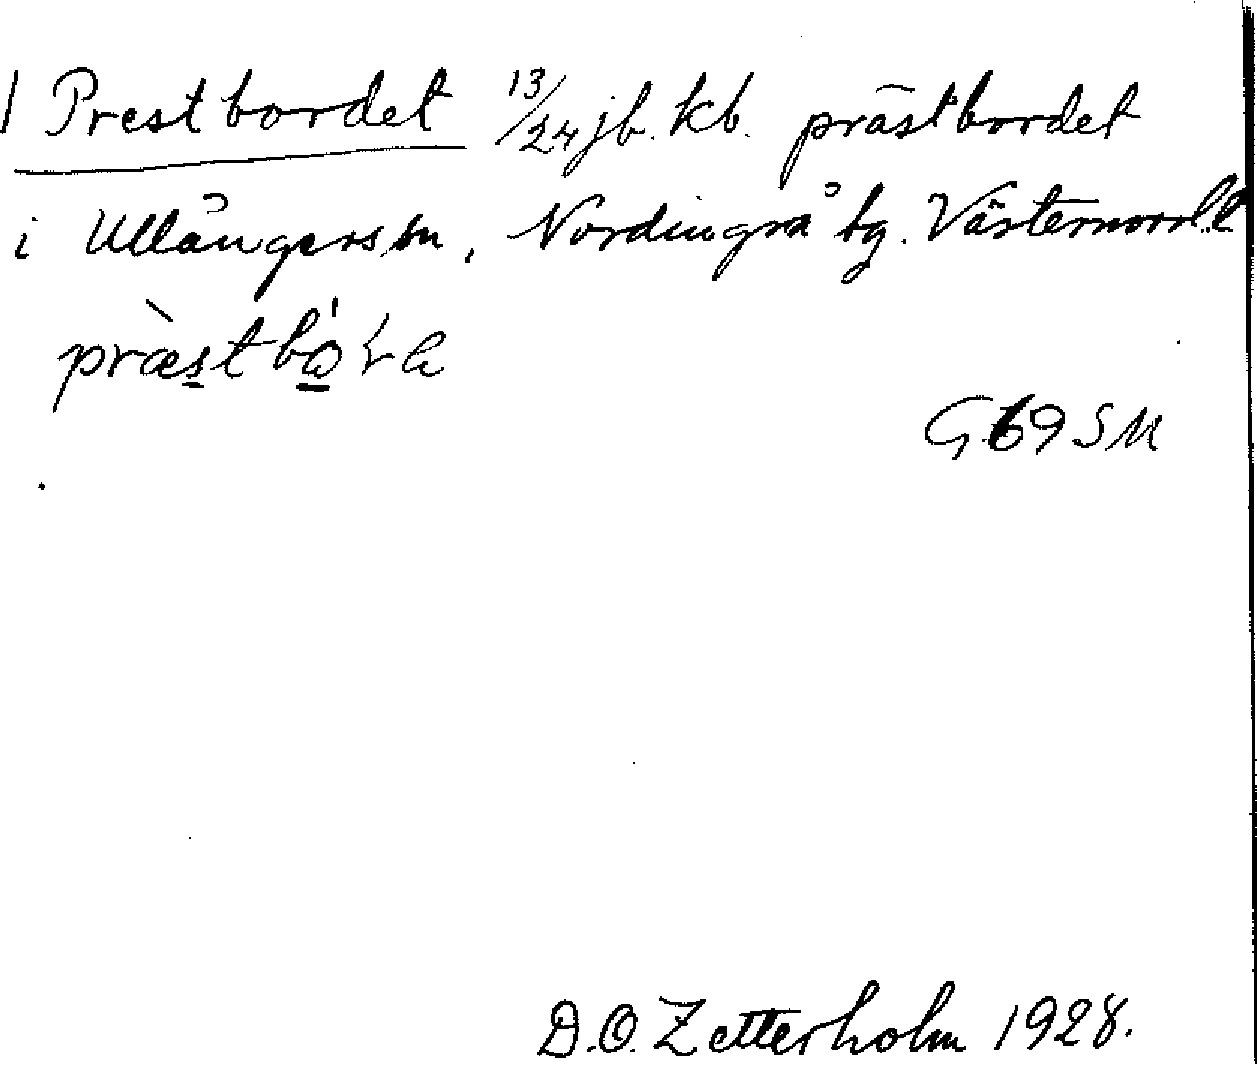 1 Prestbordet 13/24 jb. kb. prästbordet
i Ullångers sn, Nordingrå tg. Västernorrl. l
G 69 SM
D.O. Zetterholm 1928.